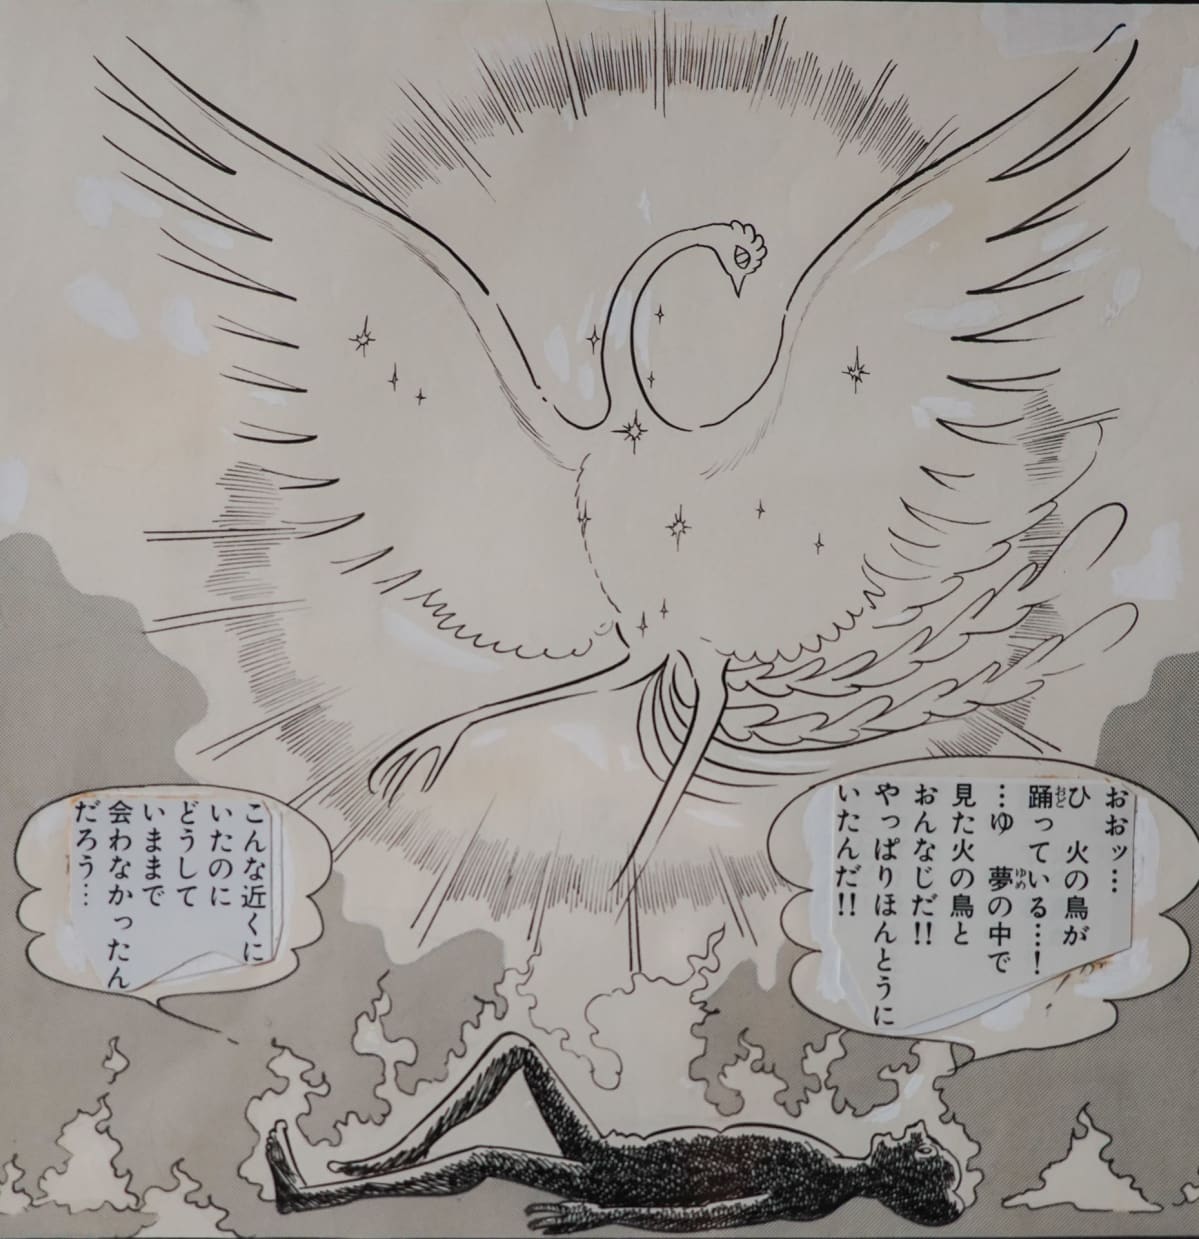 おおッ…
ひ　火の鳥が
踊っている…!
…ゆ　夢の中で
見た火の鳥と
おんなじだ!!
やっぱりほんとうに
いたんだ!!
こんな近くに
いたのに
どうして
いままで
会わなかったん
だろう…